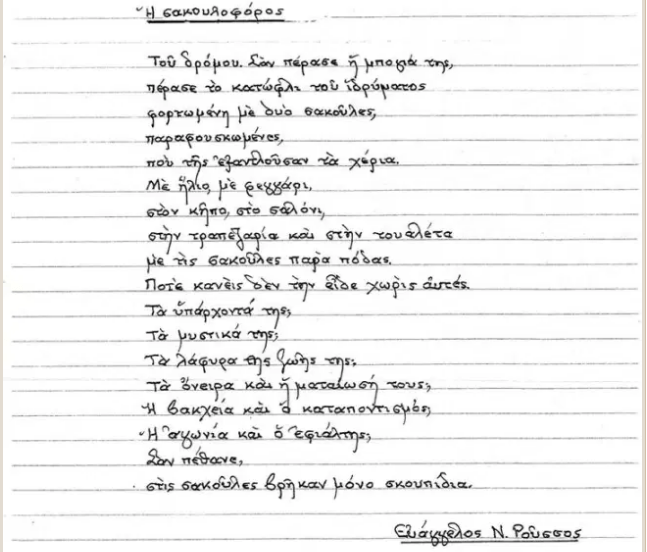 Ἡ σακουλοφόρος
Τοῦ δρόμου. Σὰν πέρασε ἡ μπογιά της,
πέρασε τὸ κατώφλι τοῦ ἱδρύματος
φορτωμένη μὲ δυὸ σακοῦλες,
παραφουσκωμένες,
ποὺ τῆς ἐξαντλοῦσαν τὰ χέρια.
Μὲ ἥλιο, μὲ φεγγάρι,
στὸν κῆπο, στὸ σαλόνι,
στὴν τραπεζαρία καὶ στὴν τουαλέτα
μὲ τὶς σακοῦλες παρὰ πόδας.
Ποτὲ κανεὶς δὲν τὴν εἶδε χωρὶς αὐτές.
Τὰ ὑπάρχοντά της;
Τὰ μυστικά της;
Τὰ λάφυρα τῆς ζωῆς της;
Τὰ ὄνειρα καὶ ἡ ματαίωσή τους;
Ἡ βακχεία καὶ ὁ καταποντισμός;
Ἡ ἀγωνία καὶ ὁ ἐφιάλτης;
Σὰν πέθανε,
στὶς σακοῦλες βρῆκαν μόνο σκουπίδια.
Εὐάγγελος Ν. Ροῦσσος